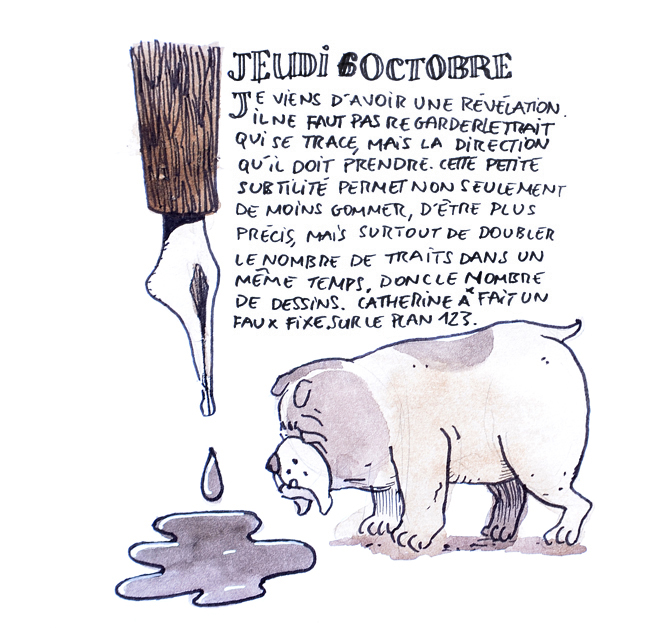 JEUDI 6 OCTOBRE
JE VIENS D'AVOIR UNE RÉVÉLATION.
IL NE FAUT PAS REGARDER LE TRAIT
QUI SE TRACE, MAIS LA DIRECTION
QU'IL DOIT PRENDRE. CETTE PETITE
SUBTILITÉ PERMET NON SEULEMENT
DE MOINS GOMMER, D'ÊTRE PLUS
PRÉCIS, MAIS SURTOUT DE DOUBLER
LE NOMBRE DE TRAITS DANS UN
MÊME TEMPS, DONC LE NOMBRE
DE DESSINS. CATHERINE A FAIT UN
FAUX FIXE SUR LE PLAN 123.